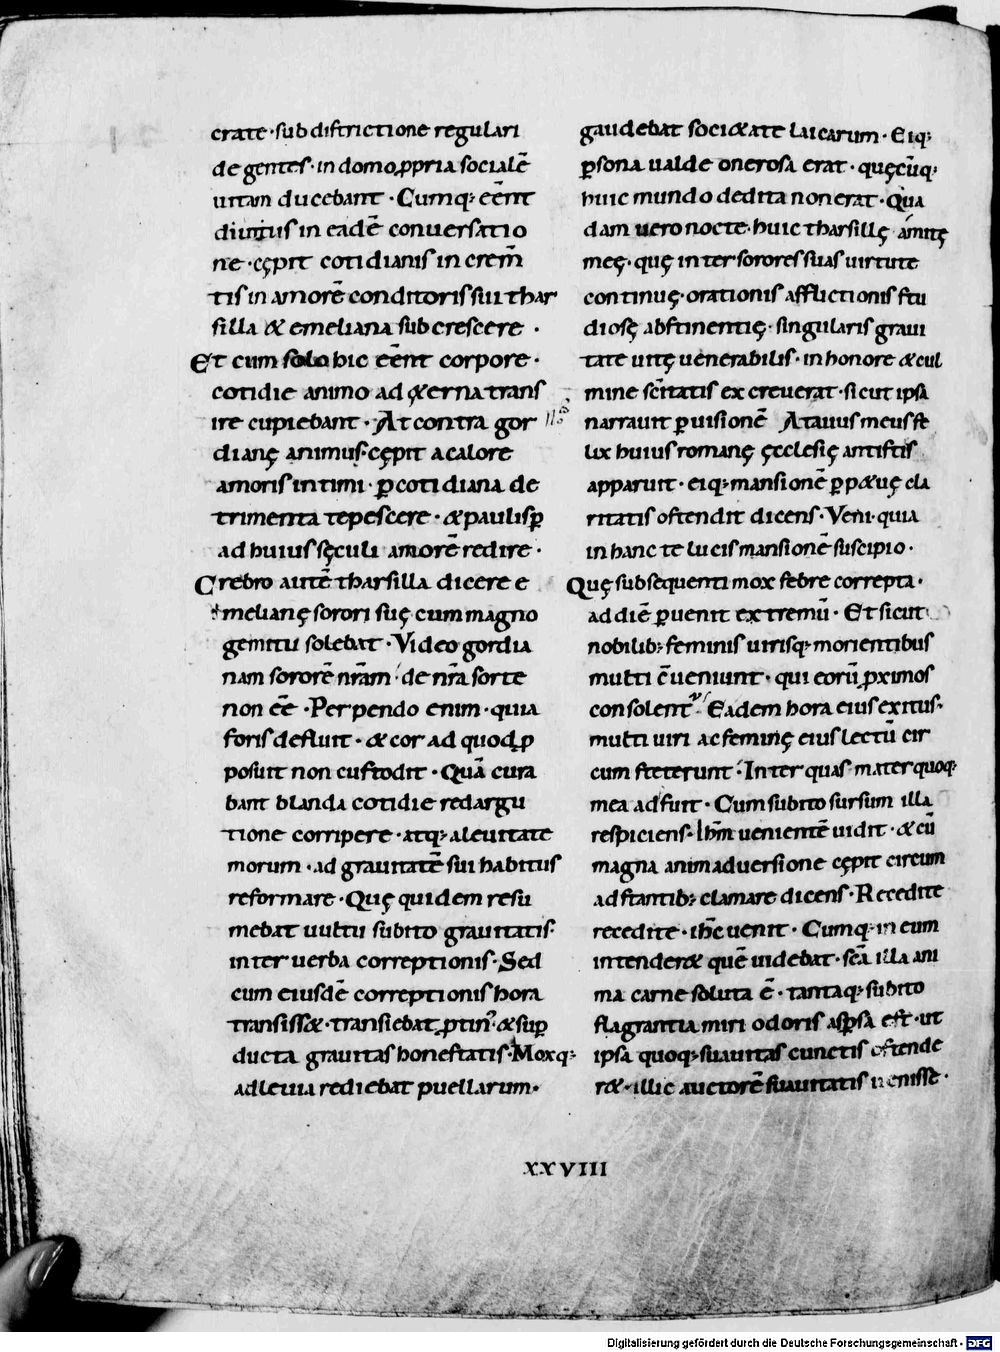 crate · sub districtione regulari
degentes · in domo ꝓpria socialē
uitam ducebant · Cumq; eēnt
diutius in eadē conuersatio
ne · cępit cotidianis in crem̄
tis in amorē conditoris sui thar
silla & emeliana sub crescere ·
Et cum solo hic eēnt corpore ·
cotidie animo ad ęterna trans
ire cupiebant · At contra gor
dianę animus · cępit a calore
amoris intimi · ꝑ cotidiana de
trimenta tepescere · & paulisꝑ
ad huius sęculi amorē redire ·
Crebro autē tharsilla dicere e
melianę sorori suę cum magno
gemitu solebat · Video gordia
nam sororē nr̄am · de nr̄a sorte
non eē · Perpendo enim · quia
foris defluit · & cor ad quod ꝓ
posuit non custodit · Quā cura
bant blanda cotidie redargu
tione corripere · atq; a leuitate
morum · ad grauitatē sui habitus
reformare · Quę quidem resu
mebat uultu subito grauitatis
inter uerba correptionis · Sed
cum eiusdē correptionis hora
transiss& · transiebat ꝓtin' · & suꝑ
ducta grauitas honestatis · Moxq;
ad leuia rediebat puellarum ·
gaudebat soci&ate laicarum · Eiq;
ꝑsona ualde onerosa erat · quęcūq;
huic mundo dedita non erat · Qua
dam uero nocte · huic tharsillę amitę
meę · quę inter sorores suas uirtute
continuę · orationis afflictionis stu
diosę abstinentię · singularis graui
tate uitę uenerabilis · in honore & cul
mine sc̄itatis excreuerat · sicut ipsa
narrauit ꝑ uisionē Atauus meus fe
lix huius romanę ęcclesię antistis
apparuit · eiq; mansionē ꝑp&uę cla
ritatis ostendit dicens · Veni · quia
in hanc te lucis mansionē suscipio ·
Quę subsequenti mox febre correpta ·
ad diē ꝑuenit extremū · Et sicut
nobilib; feminis uirisq; morientibus
multi c̄ueniunt · qui eorū ꝓximos
consolent' Eadem hora eius exitus ·
multi uiri ac feminę eius lectū cir
cum steterunt · Inter quas mater quoq;
mea adfuit · Cum subito sursum illa
respiciens · Ihm̄ uenientē uidit · & cū
magna animaduersione cępit circum
adstantib; clamare dicens · Recedite
recedite · ihc̄ uenit · Cumq; in eum
intender& quē uidebat · sc̄a illa ani
ma carne soluta ē · tantaq; subito
flagrantia miri odoris asꝑsa est · ut
ipsa quoq; suauitas cunctis ostende
r& · illic auctorē suauitatis uenisse ·
XXVIII
Digitalisierung gefördert durch die Deutsche Forschungsgemeinschaft - DFG